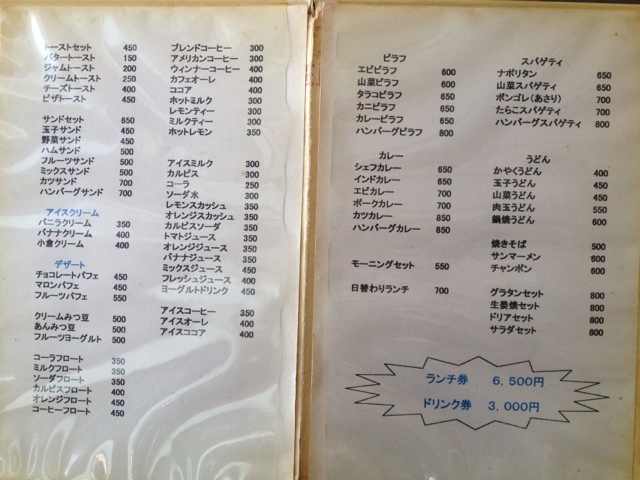 トーストセット 450
バタートースト 150
ジャムトースト 200
クリームトースト 250
チーズトースト 400
ピザトースト 450
サンドセット 650
玉子サンド 450
野菜サンド 450
ハムサンド 500
フルーツサンド 500
ミックスサンド 500
カツサンド 700
ハンバーグサンド 700
アイスクリーム
バニラクリーム 350
バナナクリーム 400
小倉クリーム 400
デザート
チョコレートパフェ 450
マロンパフェ 450
フルーツパフェ 550
クリームみつ豆 500
あんみつ豆 500
フルーツヨーグルト 500
コーラフロート 350
ミルクフロート 350
ソーダフロート 350
カルピスフロート 400
オレンジフロート 400
コーヒーフロート 450
ブレンドコーヒー 300
アメリカンコーヒー 300
ウィンナーコーヒー 400
カフェオーレ 400
ココア 400
ホットミルク 300
レモンティー 300
ミルクティー 300
ホットレモン 350
アイスミルク 300
カルピス 300
コーラ 250
ソーダ水 300
レモンスカッシュ 350
オレンジスカッシュ 350
カルピスソーダ 350
トマトジュース 350
オレンジジュース 350
バナナジュース 350
ミックスジュース 450
フレッシュジュース 400
ヨーグルトドリンク 450
アイスコーヒー 350
アイスオーレ 400
アイスココア 400
ピラフ
エビピラフ 600
山菜ピラフ 650
タラコピラフ 650
カニピラフ 650
カレーピラフ 650
ハンバーグピラフ 700
カレー
シェフカレー 650
インドカレー 650
エビカレー 700
ポークカレー 700
カツカレー 850
ハンバグカレー 850
モーニングセット 550
日替わりランチ 700
スパゲティ
ナポリタン 650
山菜スパゲティ 650
ボンゴレ(あさり) 700
たらこスパゲティ 700
ハンバーグスパゲティ 800
うどん
かやくうどん 400
玉子うどん 450
山菜うどん 450
肉玉うどん 550
鍋焼うどん 600
焼きそば 500
サンマーメン 600
チャンポン 600
グラタンセット 800
生姜焼セット 800
ドリアセット 800
サラダセット 800
ランチ券 6,500円
ドリンク券 3,000円